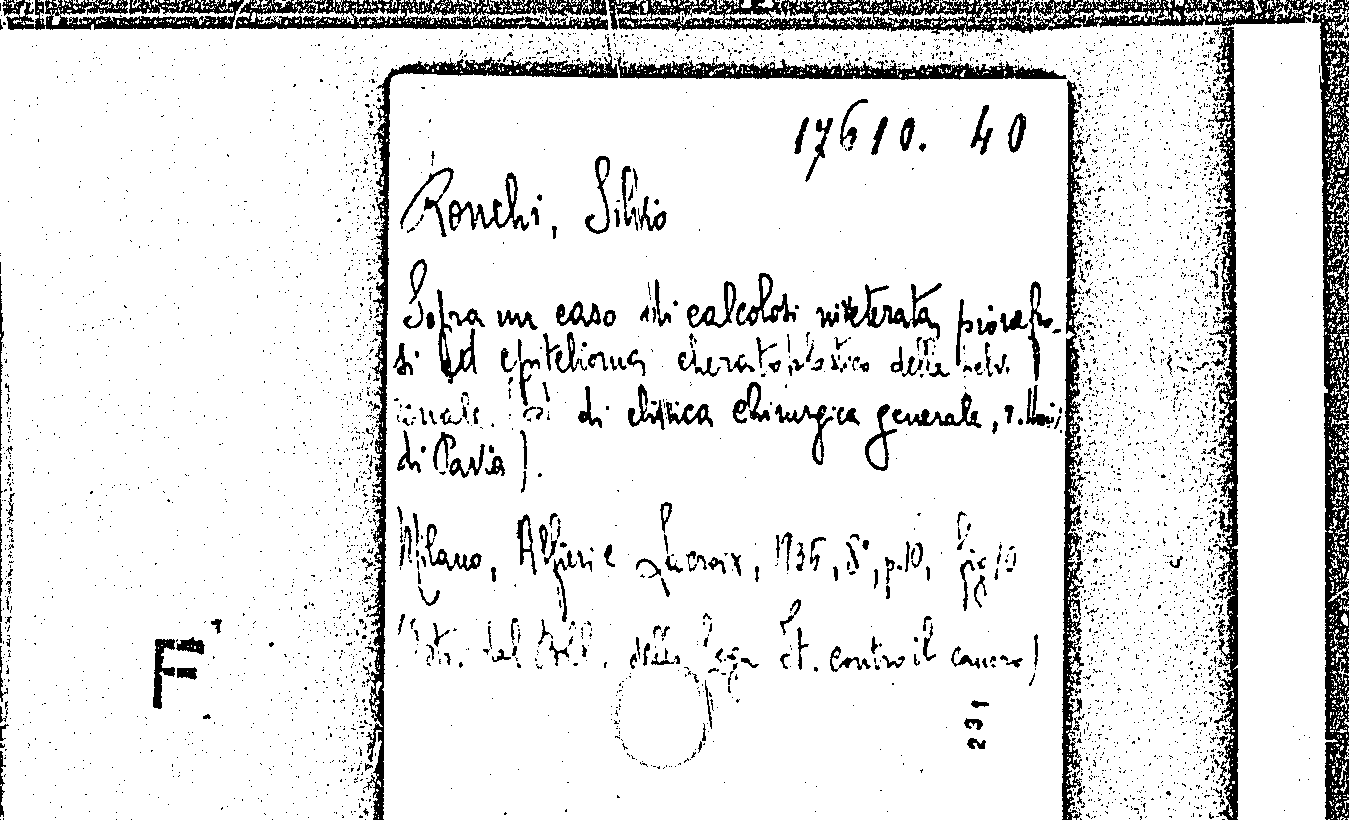 17610. 40
Ronchi, Silvio
Sopra un caso di calcolosi inveterata, pionefro-
si ed epitelioma cheratoblastico della pelvi
renale. di clinica chirurgica generale, r. Univ.
di Pavia).
Milano, Alfieri e Lacroix, 1935, 8°, p. 10, fig 10
(Estr. dal Boll. della Lega It. contro il cancro)
231
F